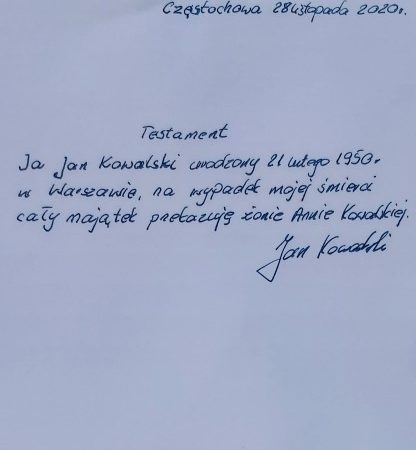 Częstochowa 28 listopada 2020r.
Testament
Ja Jan Kowalski urodzony 21 lutego 1950r
w Warszawie, na wypadek mojej śmierci
cały majątek przekazuję żonie Annie Kowalskiej.
Jan Kowalski